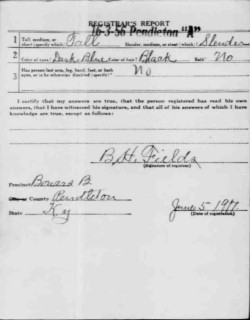 REGISTRAR'S REPORT
16-3-56 Pendleton "A"
1 Tall, medium, or short (specify which)? Tall Slender, medium, or stout (which)? Slender
2 Color of eyes? Dark Blue Color of hair? Black Bald? No
3 Has person lost arm, leg, hand, foot, or both
eyes, or is he otherwise disabled (specify)? No
I certify that my answers are true, that the person registered has read his own
answers, that I have witnessed his signature, and that all of his answers of which I
have knowledge are true, except as follows:
B.H. Fields
(Signature of registrar)
Precinct
County Pendleton
State Ky
June 5 1917
(Date of registration)